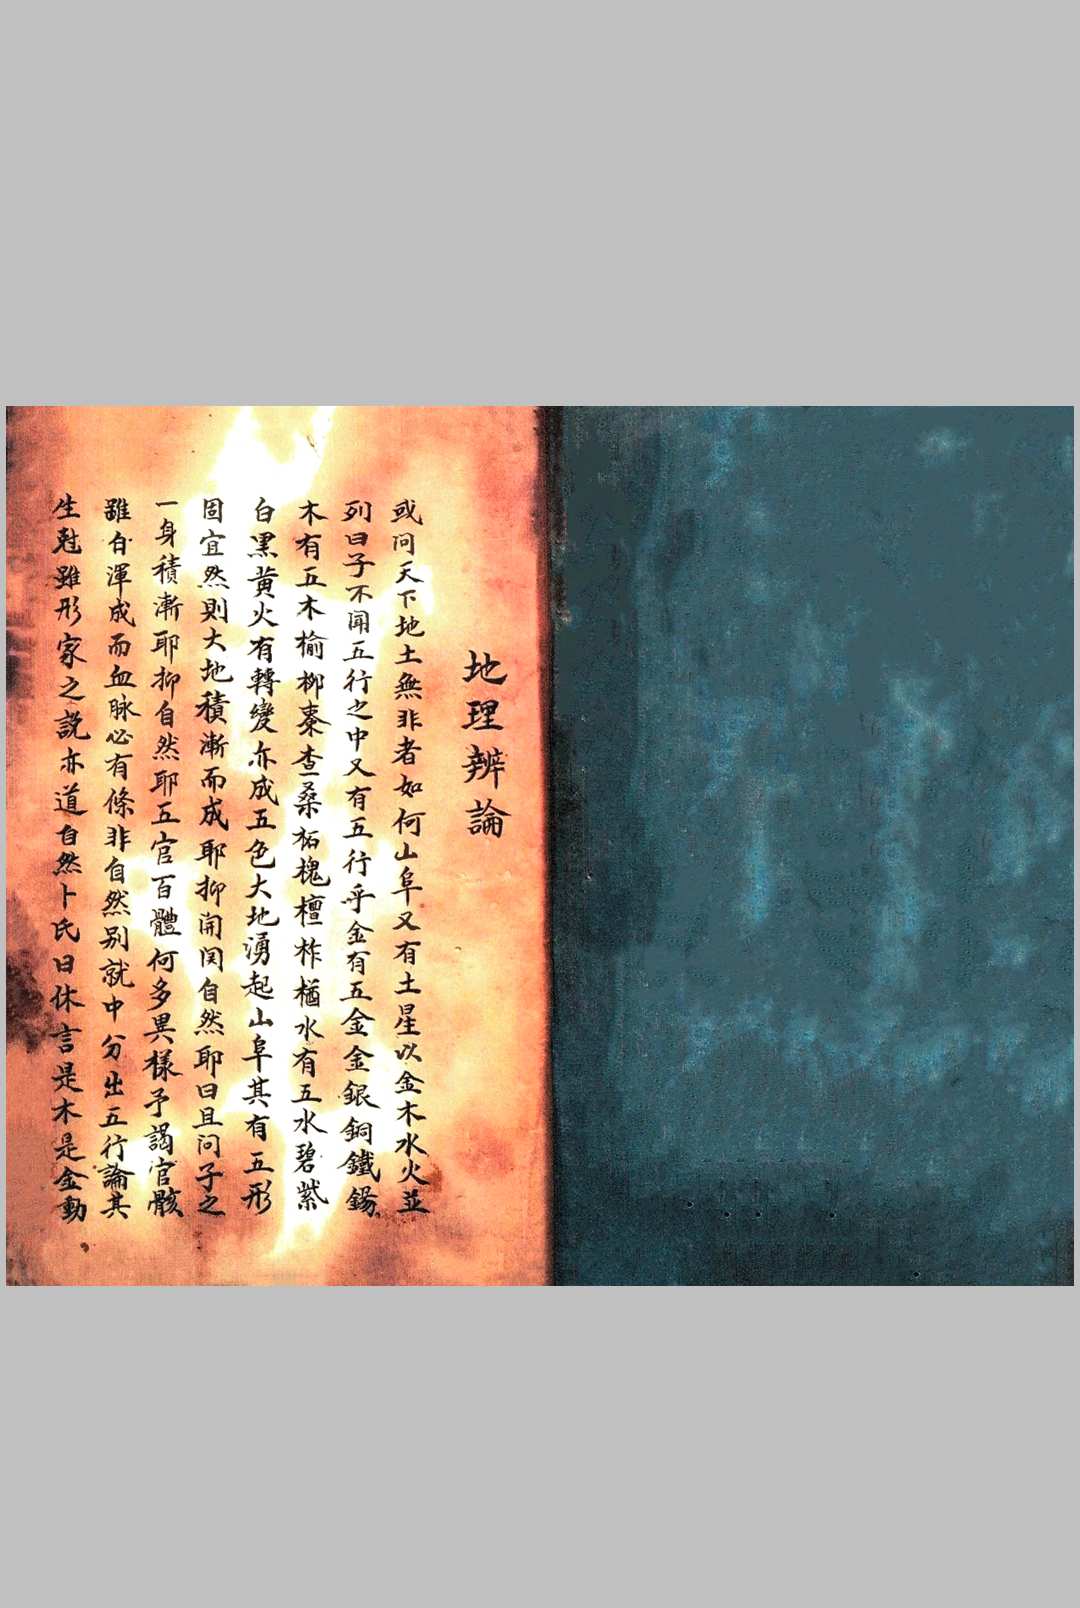 地理辨論
或問天下地土無非者如何山阜又有土星以金木水火並
列曰子不聞五行之中又有五行乎金有五金金銀銅鐵錫
木有五木榆柳棗查桑柘槐檀柞楢水有五水碧紫
白黑黄火有轉變亦成五色大地湧起山阜其有五形
固宜然則大地積漸而成耶抑開闵自然耶曰且问子之
一身積漸耶抑自然耶五官百體何多異樣予謁官骸
雖白渾成而血脉必有條非自然别就中分出五行論其
生尅雖形家之説亦道自然卜氏曰休言是木是金動